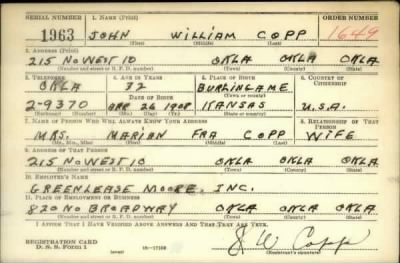 SERIAL NUMBER 1. NAME (Print) ORDER NUMBER
1963 JOHN WILLIAM COPP 1649
(First) (Middle) (Last)
2. ADDRESS (Print)
215 NO WEST 10 OKLA OKLA OKLA
(Number and street or R. F. D. number) (Town) (County) (State)
3. TELEPHONE 4. AGE IN YEARS 5. PLACE OF BIRTH 6. COUNTRY OF CITIZENSHIP
OKLA 32 BURLINGAME
DATE OF BIRTH (Town or county)
2-9370 26 1908 KANSAS U.S.A.
7. NAME OF PERSON WHO WILL ALWAYS KNOW YOUR ADDRESS 8. RELATIONSHIP OF THAT PERSON
MRS. MARIAN FRA COPP WIFE
(Mr., Mrs., Miss) (First) (Middle) (Last)
9. ADDRESS OF THAT PERSON
215 NO WEST 10 OKLA OKLA OKLA
(Number and street or R. F. D. number) (Town) (County) (State)
10. EMPLOYER'S NAME
GREENLEASE MOORE, INC.
11. PLACE OF EMPLOYMENT OR BUSINESS
820 NO BROADWAY OKLA OKLA OKLA
(Number and street or R. F. D. number) (Town) (County) (State)
I AFFIRM THAT I HAVE VERIFIED ABOVE ANSWERS AND THAT THEY ARE TRUE.
REGISTRATION CARD J W Copp
D. S. S. Form 1 (Registrant's signature)